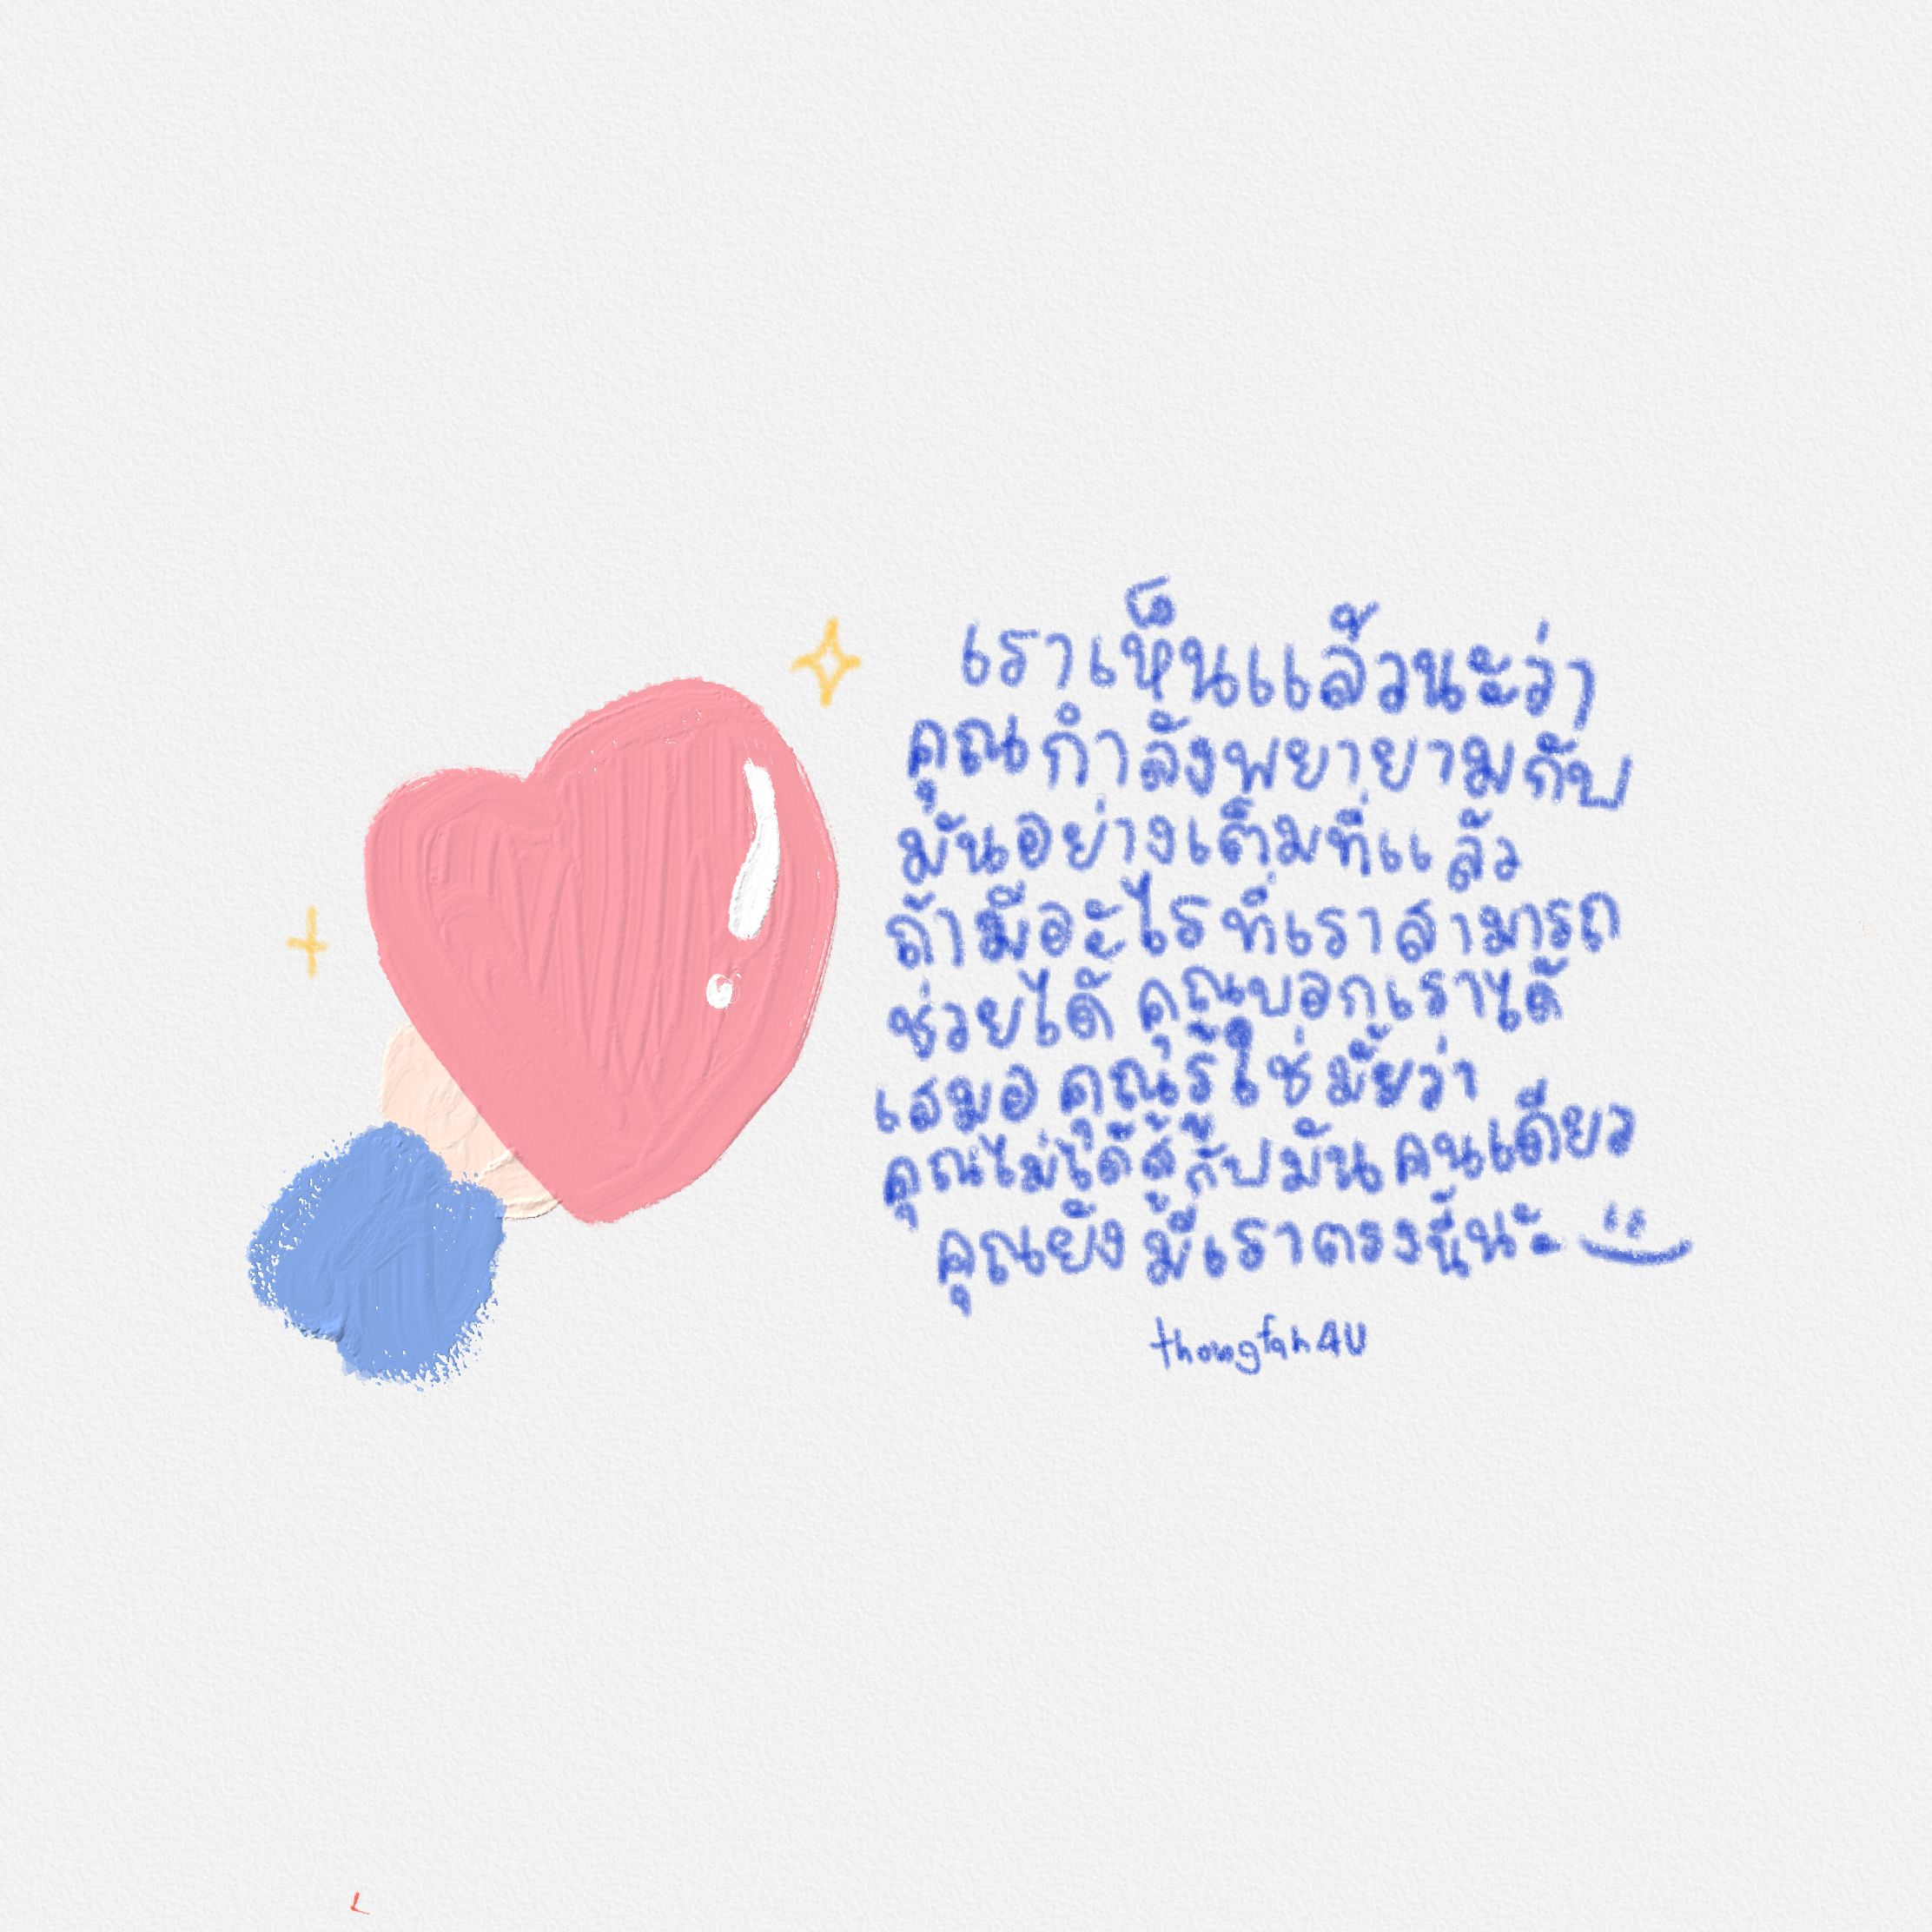 เราเห็นแล้วนะว่า
คุณกำลังพยายามกับ
มันอย่างเต็มที่แล้ว
ถ้ามีอะไรที่เราสามารถ
ช่วยได้ คุณบอกเราได้
เสมอ คุณรู้ใช่มั้ยว่า
คุณไม่ได้สู้กับมันคนเดียว
คุณยังมีเราตรงนี้นะ
thongfah4U